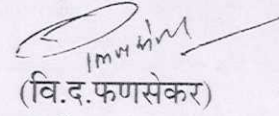 (वि.द.फणसेकर)